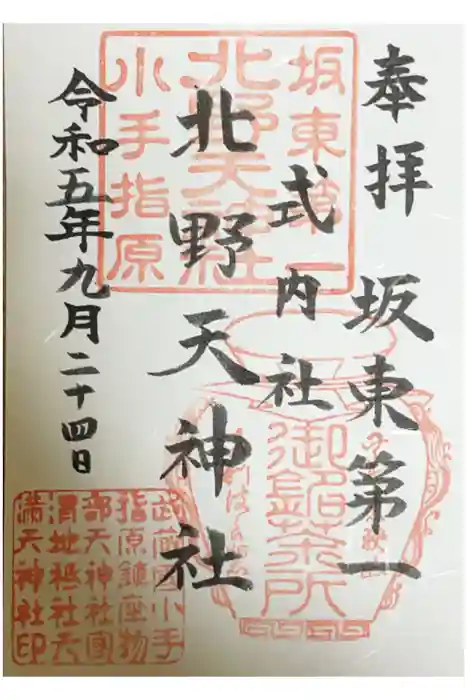 奉拝
坂東第一
式内社
北野天神社
令和五年九月二十四日
坂東第一
北野天神社
小手指原
御銘茶所
武蔵國小手
指原鎮座物
部天神社國
渭地祇社天
満天神社印